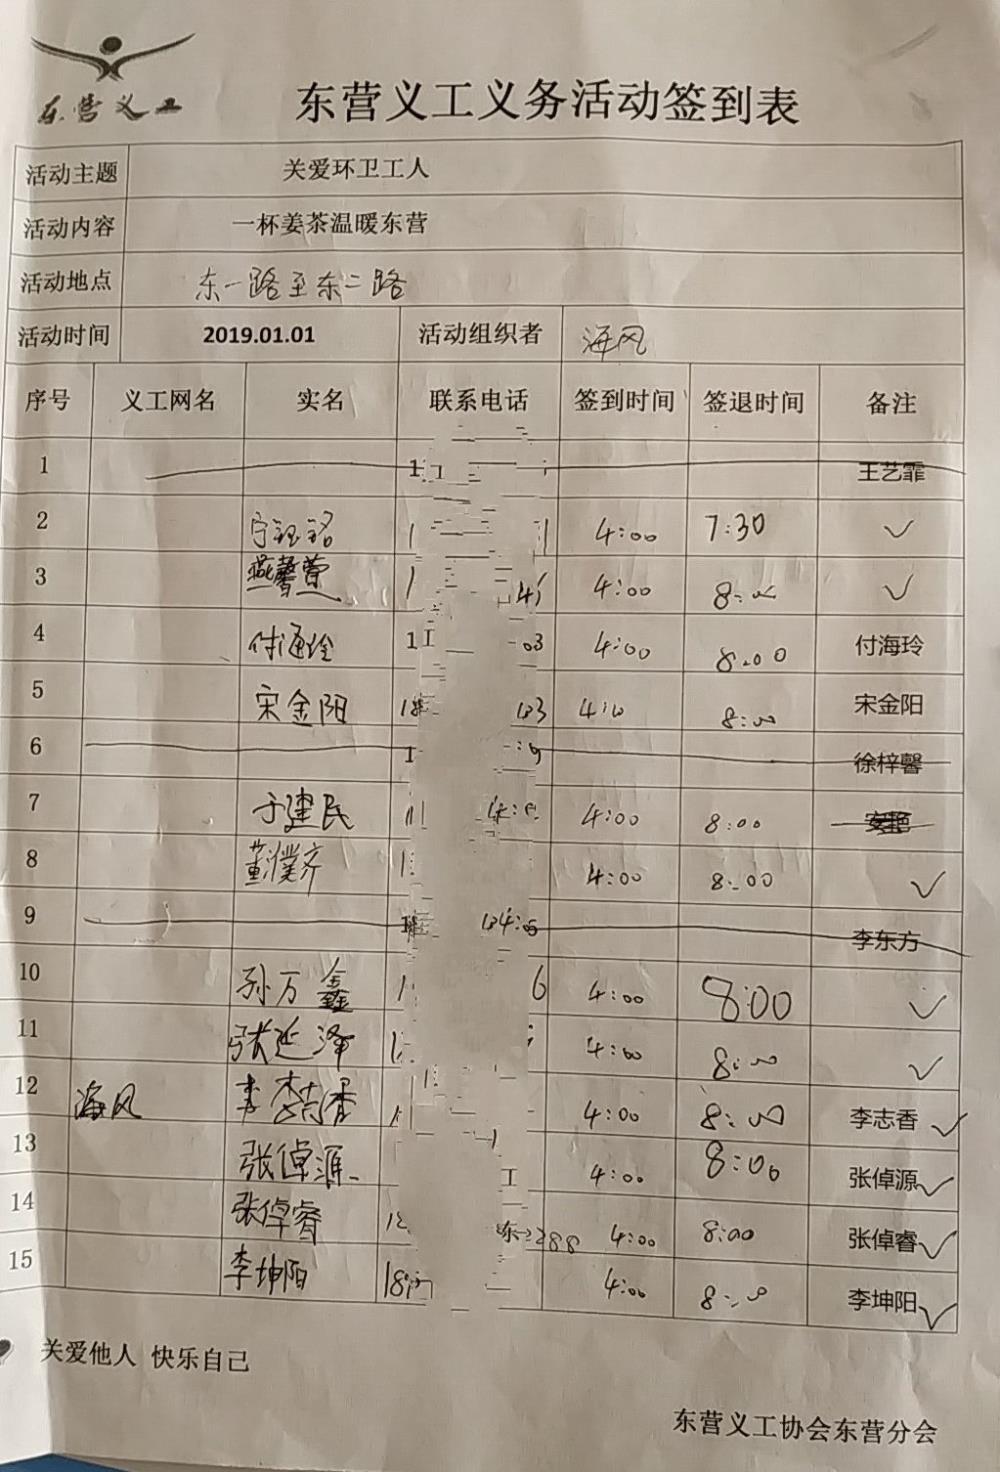 东营义工
东营义工义务活动签到表
活动主题 关爱环卫工人
活动内容 一杯姜茶温暖东营
活动地点 东一路至东二路
活动时间 2019.01.01 活动组织者 海风
序号 义工网名 实名 联系电话 签到时间 签退时间 备注
1 王艺霏
2 4:00 7:30 ✓
3 燕馨萱 4:00 8:00 ✓
4 付海玲 4:00 8:00 付海玲
5 宋金阳 4:00 8:00 宋金阳
6 徐梓馨
7 于建民 4:00 8:00
8 董濮齐 4:00 8:00 ✓
9 李东方
10 孙万鑫 6 4:00 8:00 ✓
11 张延泽 4:00 8:00 ✓
12 海风 李志香 4:00 8:00 李志香 ✓
13 张倬源 4:00 8:00 张倬源 ✓
14 张倬睿 288 4:00 8:00 张倬睿 ✓
15 李坤阳 4:00 8:00 李坤阳 ✓
关爱他人 快乐自己
东营义工协会东营分会